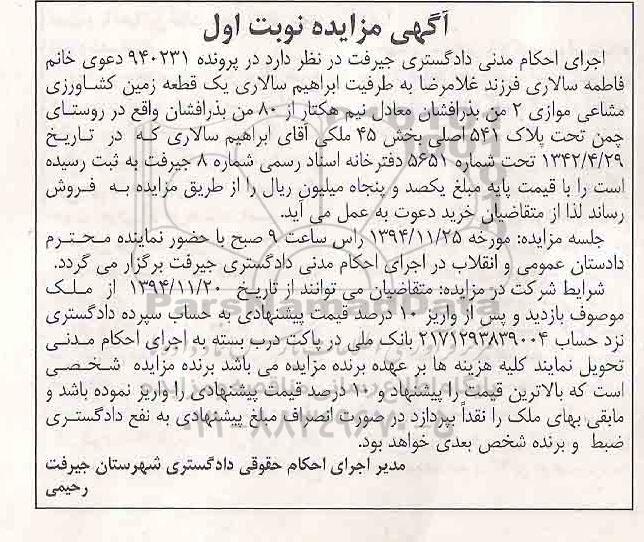 آگهی مزایده نوبت اول
اجرای احکام مدنی دادگستری جیرفت در نظر دارد در پرونده ۹۴۰۲۳۱ دعوی خانم
فاطمه سالاری فرزند غلامرضا به طرفیت ابراهیم سالاری یک قطعه زمین کشاورزی
مشاعی موازی ۲ من بذرافشان معادل نیم هکتار از ۸۰ من بذرافشان واقع در روستای
چمن تحت پلاک ۵۴۱ اصلی بخش ۴۵ ملکی آقای ابراهیم سالاری که در تاریخ
۱۳۴۲/۴/۲۹ تحت شماره ۵۶۵۱ دفترخانه اسناد رسمی شماره ۸ جیرفت به ثبت رسیده
است را با قیمت پایه مبلغ یکصد و پنجاه میلیون ریال را از طریق مزایده به فروش
رساند لذا از متقاضیان خرید دعوت به عمل می آید.
جلسه مزایده: مورخه ۱۳۹۴/۱۱/۲۵ راس ساعت ۹ صبح با حضور نماینده محترم
دادستان عمومی و انقلاب در اجرای احکام مدنی دادگستری جیرفت برگزار می گردد.
شرایط شرکت در مزایده: متقاضیان می توانند از تاریخ ۱۳۹۴/۱۱/۲۰ از ملک
موصوف بازدید و پس از واریز ۱۰ درصد قیمت پیشنهادی به حساب سپرده دادگستری
نزد حساب ۲۱۷۱۲۹۳۸۳۹۰۰۴ بانک ملی در پاکت درب بسته به اجرای احکام مدنی
تحویل نمایند کلیه هزینه ها بر عهده برنده مزایده می باشد برنده مزایده شخصی
است که بالاترین قیمت را پیشنهاد و ۱۰ درصد قیمت پیشنهادی را واریز نموده باشد و
مابقی بهای ملک را نقداً بپردازد در صورت انصراف مبلغ پیشنهادی به نفع دادگستری
ضبط و برنده شخص بعدی خواهد بود.
مدیر اجرای احکام حقوقی دادگستری شهرستان جیرفت
رحیمی